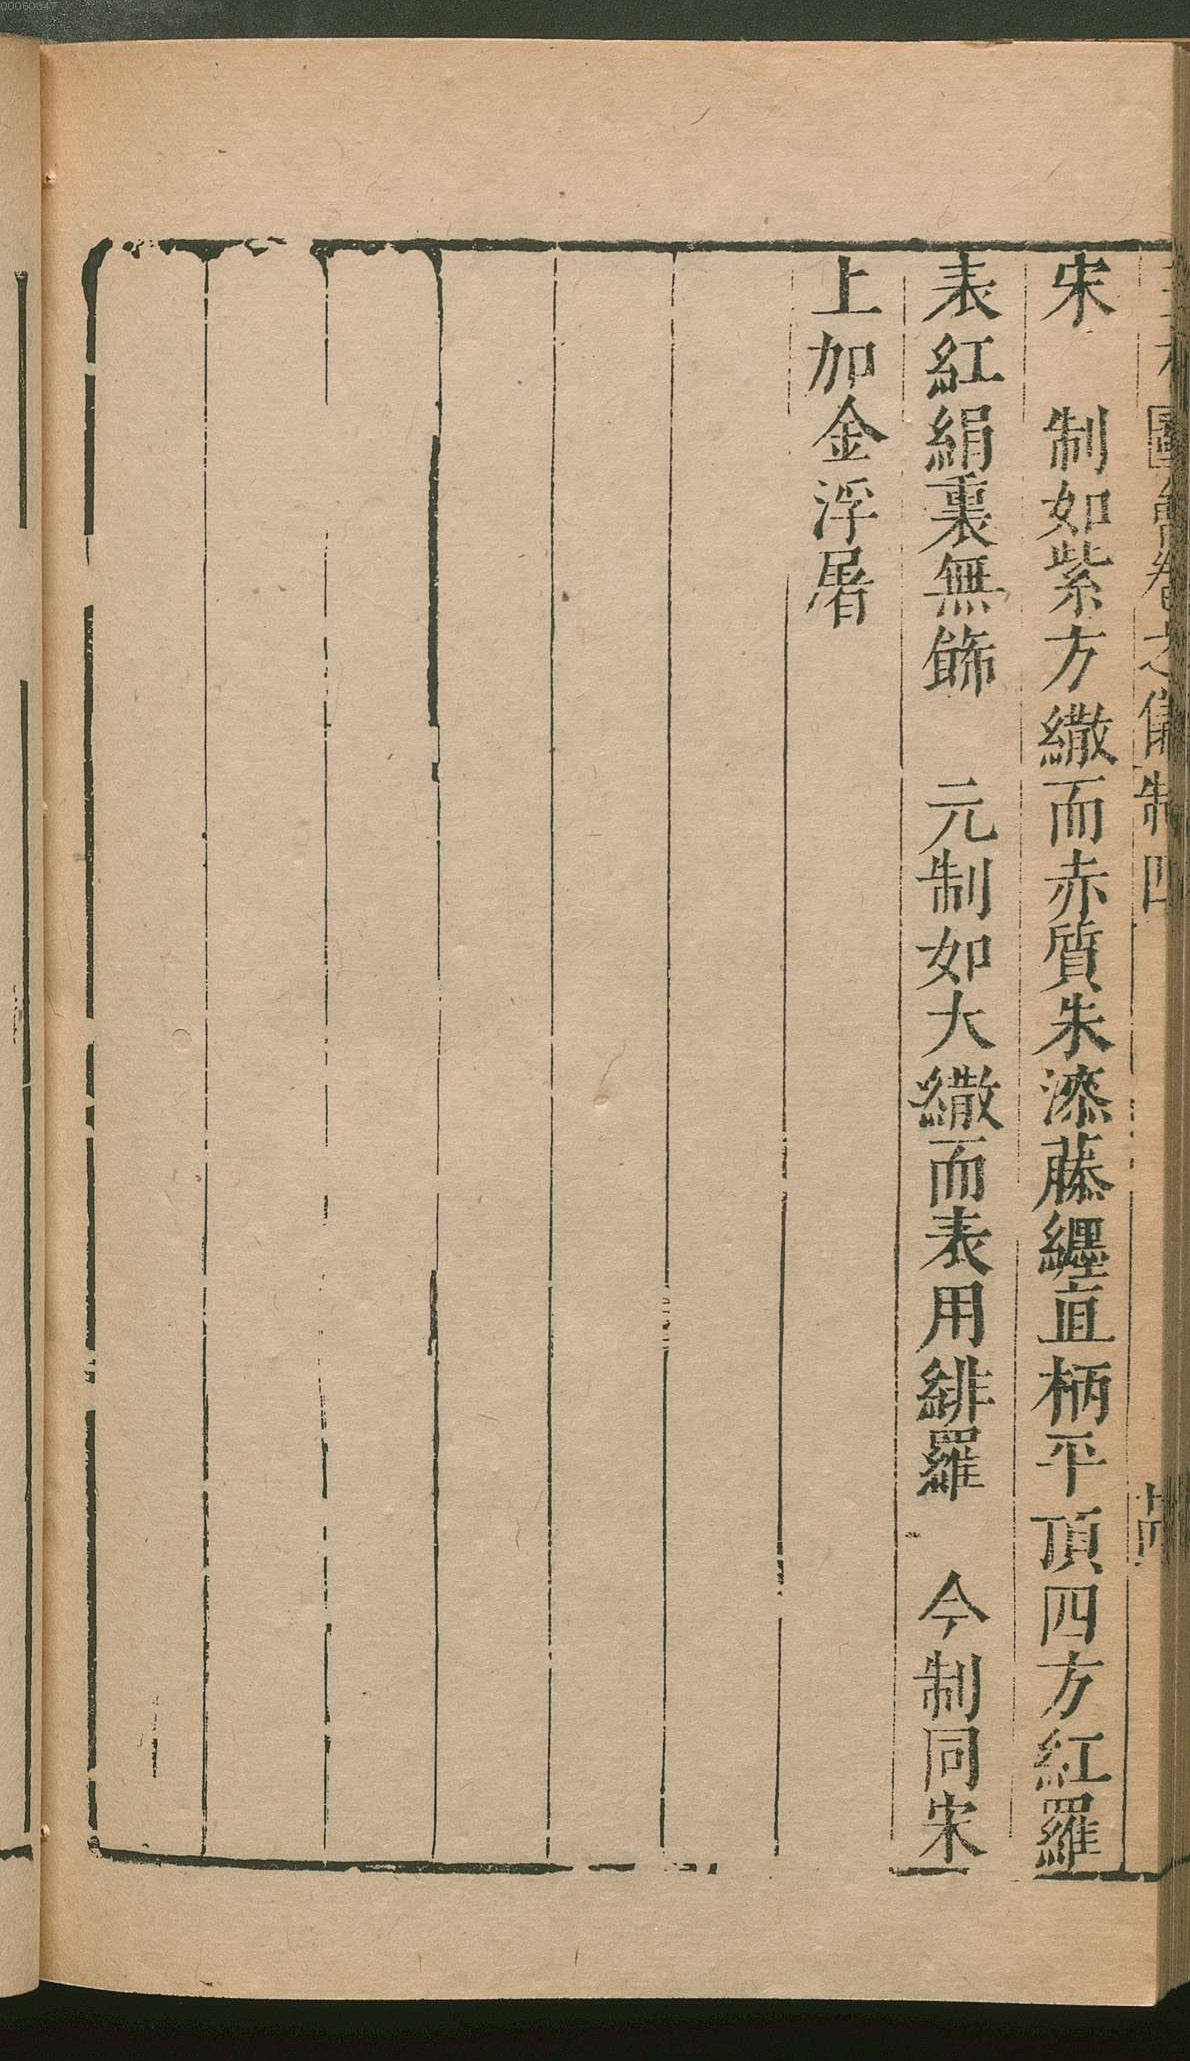 圖會卷之儀制四
宋　制如紫方繖而赤質朱漆藤纏直柄平頂四方紅羅
表紅絹裏無飾　元制如大繖而表用緋羅　今制同宋
上加金浮屠
00060047